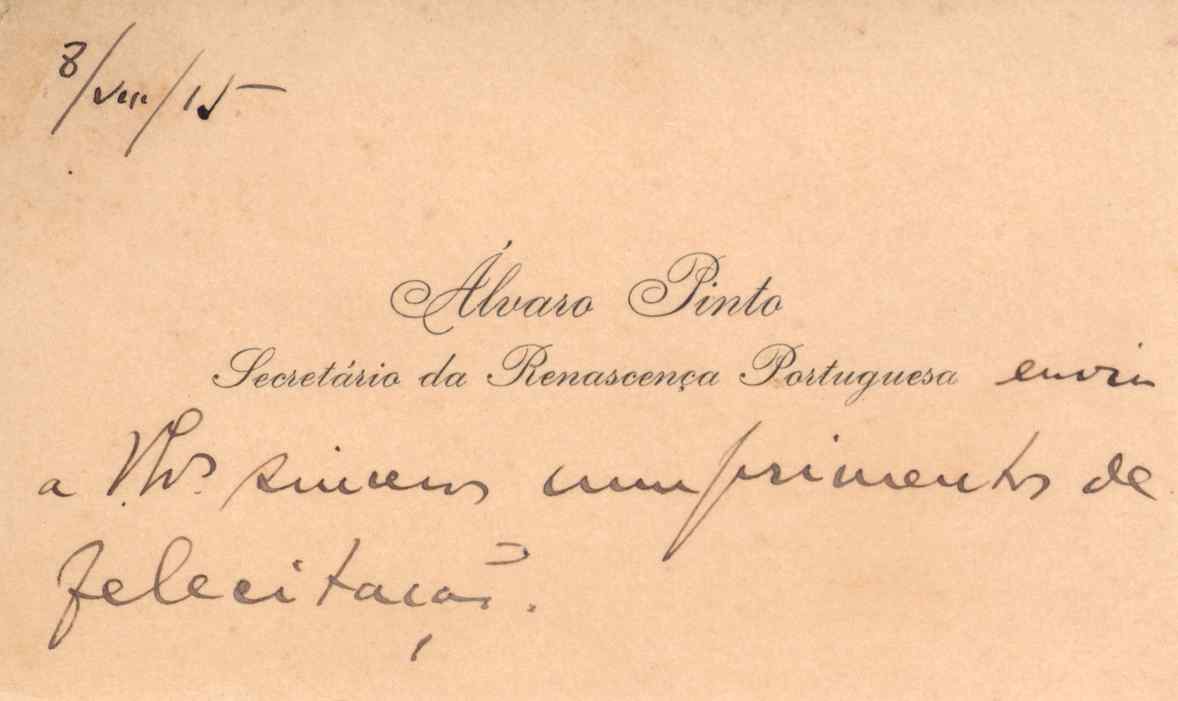 8/VIII/15
Álvaro Pinto
Secretário da Renascença Portuguesa envia
a sinceros cumprimentos de
felecitação.